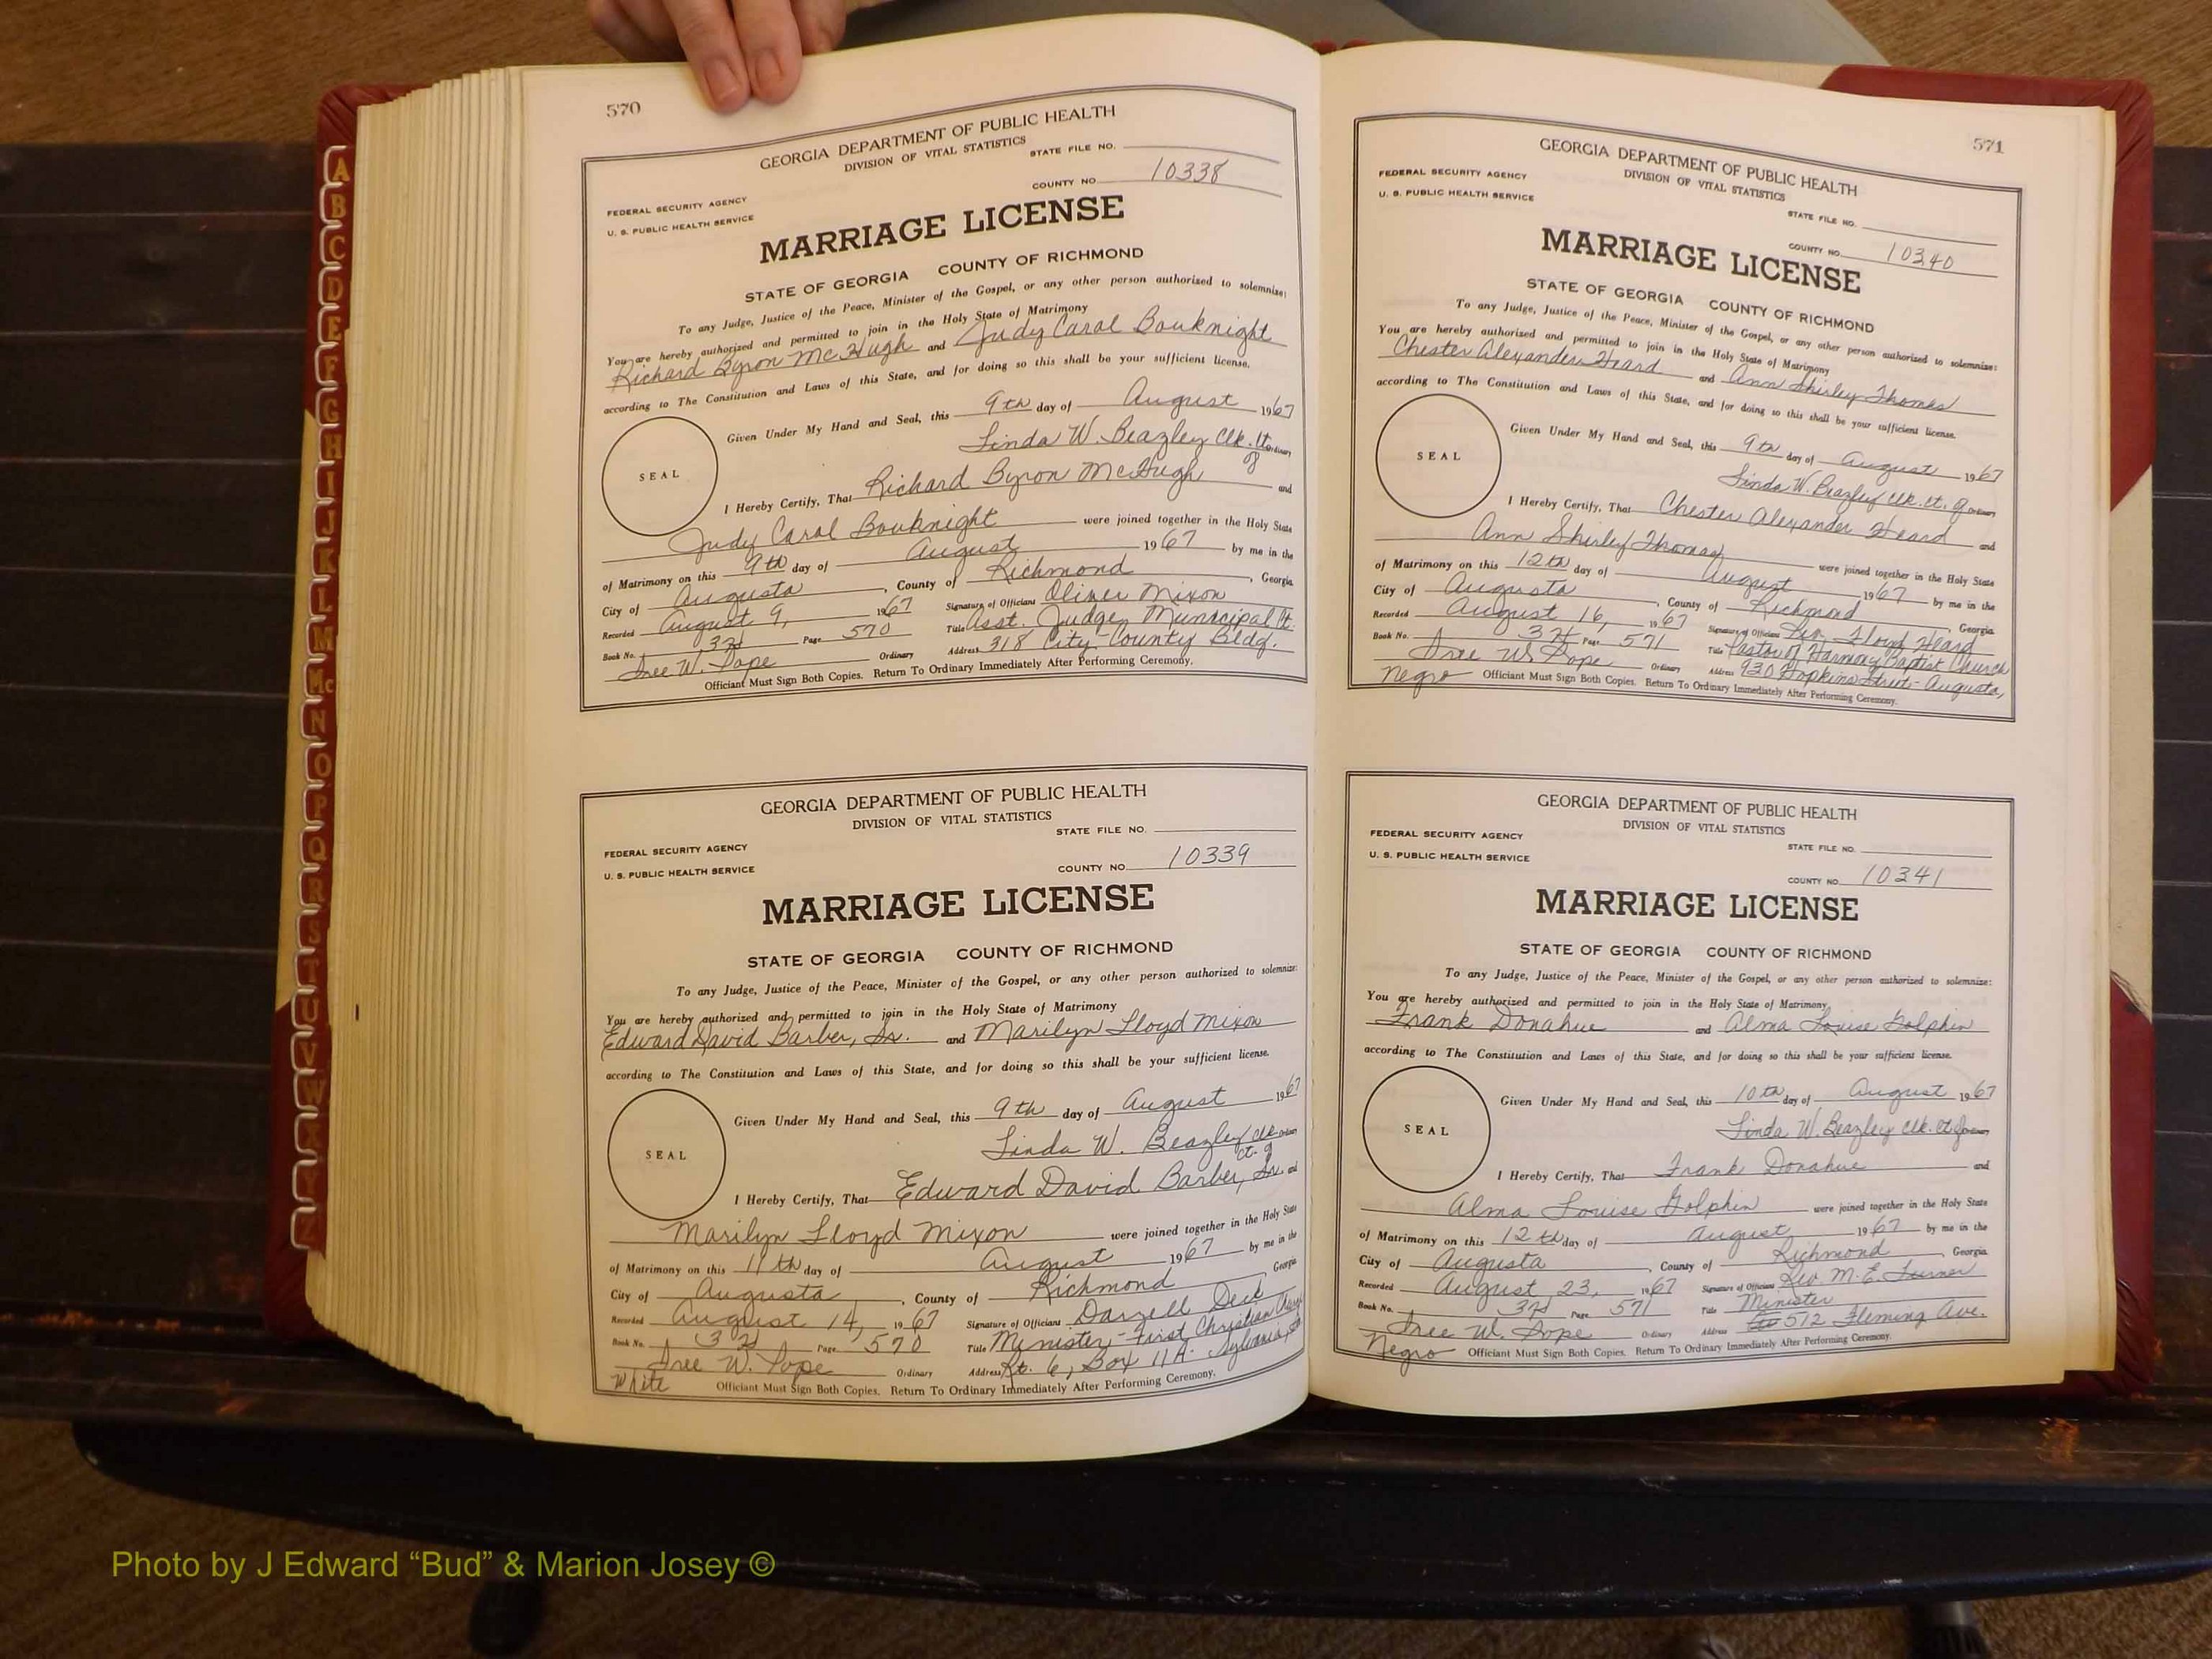 570
GEORGIA DEPARTMENT OF PUBLIC HEALTH
DIVISION OF VITAL STATISTICS
STATE FILE NO.
COUNTY NO. 10338
FEDERAL SECURITY AGENCY
U. S. PUBLIC HEALTH SERVICE
MARRIAGE LICENSE
STATE OF GEORGIA COUNTY OF RICHMOND
To any Judge, Justice of the Peace, Minister of the Gospel, or any other person authorized to solemnize:
You are hereby authorized and permitted to join in the Holy State of Matrimony
Richard Byron McHugh and Judy Carol Bouknight
according to The Constitution and Laws of this State, and for doing so this shall be your sufficient license.
Given Under My Hand and Seal, this 9th day of August 1967
Linda W. Beazley Clk. Ct. of Ordinary
SEAL
I Hereby Certify, That Richard Byron McHugh and
Judy Carol Bouknight were joined together in the Holy State
of Matrimony on this 9th day of August 1967 by me in the
City of Augusta, County of Richmond, Georgia
Recorded August 9, 1967 Signature of Officiant Oliver Mixon
Book No. 32 Page 570 Title Asst. Judge Municipal Ct.
Address 318 City-County Bldg.
Ordinary
Officiant Must Sign Both Copies. Return To Ordinary Immediately After Performing Ceremony.
GEORGIA DEPARTMENT OF PUBLIC HEALTH
DIVISION OF VITAL STATISTICS
STATE FILE NO.
FEDERAL SECURITY AGENCY
U. S. PUBLIC HEALTH SERVICE
COUNTY NO. 10339
MARRIAGE LICENSE
STATE OF GEORGIA COUNTY OF RICHMOND
To any Judge, Justice of the Peace, Minister of the Gospel, or any other person authorized to solemnize:
You are hereby authorized and permitted to join in the Holy State of Matrimony
Edward David Barber, Sr. and Marilyn Lloyd Mixon
according to The Constitution and Laws of this State, and for doing so this shall be your sufficient license.
Given Under My Hand and Seal, this 9th day of August 1967
Linda W. Beazley Clk. Ct. of Ordinary
SEAL
I Hereby Certify, That Edward David Barber, Sr. and
Marilyn Lloyd Mixon were joined together in the Holy State
of Matrimony on this 11th day of August 1967 by me in the
City of Augusta, County of Richmond Georgia
Recorded August 14, 1967 Signature of Officiant Darzell
Book No. 32 Page 570 Title Minister - First Christian
W. Pope Ordinary Address Rt. 6, Box 11A Sylvania,
White Officiant Must Sign Both Copies. Return To Ordinary Immediately After Performing Ceremony.
571
GEORGIA DEPARTMENT OF PUBLIC HEALTH
DIVISION OF VITAL STATISTICS
FEDERAL SECURITY AGENCY
U. S. PUBLIC HEALTH SERVICE
STATE FILE NO.
COUNTY NO. 10340
MARRIAGE LICENSE
STATE OF GEORGIA COUNTY OF RICHMOND
To any Judge, Justice of the Peace, Minister of the Gospel, or any other person authorized to solemnize:
You are hereby authorized and permitted to join in the Holy State of Matrimony
Chester Alexander Heard and Ann Shirley Thomas
according to The Constitution and Laws of this State, and for doing so this shall be your sufficient license.
Given Under My Hand and Seal, this 9th day of August 1967
Linda W. Beazley Clk. Ct. of Ordinary
SEAL
I Hereby Certify, That Chester Alexander Heard and
Ann Shirley Thomas were joined together in the Holy State
of Matrimony on this 12th day of August 1967 by me in the
City of Augusta, County of Richmond, Georgia
Recorded August 16, 1967 Signature of Officiant Rev. Floyd Heard
Book No. 32 Page 571 Title Pastor of Harmony Baptist Church
W. Pope Ordinary Address 930 Hopkins Street - Augusta,
Negro Officiant Must Sign Both Copies. Return To Ordinary Immediately After Performing Ceremony.
GEORGIA DEPARTMENT OF PUBLIC HEALTH
DIVISION OF VITAL STATISTICS
FEDERAL SECURITY AGENCY
U. S. PUBLIC HEALTH SERVICE
STATE FILE NO.
COUNTY NO. 10341
MARRIAGE LICENSE
STATE OF GEORGIA COUNTY OF RICHMOND
To any Judge, Justice of the Peace, Minister of the Gospel, or any other person authorized to solemnize:
You are hereby authorized and permitted to join in the Holy State of Matrimony
Frank Donahue and Alma Louise Golphin
according to The Constitution and Laws of this State, and for doing so this shall be your sufficient license.
Given Under My Hand and Seal, this 10th day of August 1967
Linda W. Beazley Clk. Ct. of Ordinary
SEAL
I Hereby Certify, That Frank Donahue and
Alma Louise Golphin were joined together in the Holy State
of Matrimony on this 12th day of August 1967 by me in the
City of Augusta, County of Richmond, Georgia
Recorded August 23, 1967 Signature of Officiant Rev. M. E. Turner
Book No. 32 Page 571 Title Minister
W. Pope Ordinary Address 512 Fleming Ave.
Negro Officiant Must Sign Both Copies. Return To Ordinary Immediately After Performing Ceremony.
A
B
C
D
E
F
G
H
I
J
K
L
M
Mc
N
O
P
Q
R
S
T
U
V
W
X
Y
Z
Photo by J Edward “Bud” & Marion Josey ©